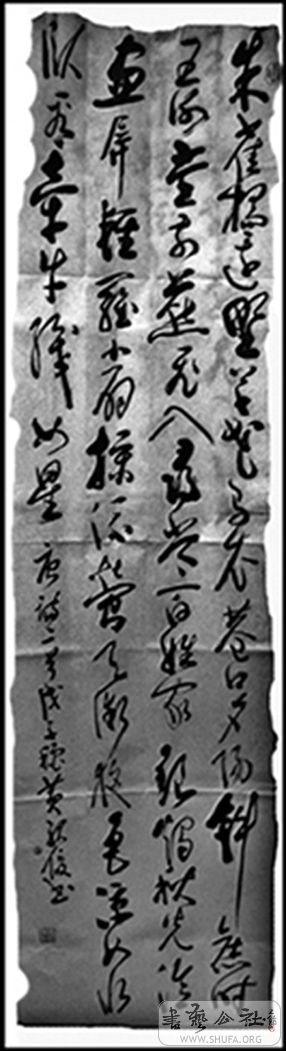 朱雀橋邊野草花烏衣巷口夕陽斜舊時
王謝堂前燕飛入尋常百姓家銀燭秋光冷
畫屏輕羅小扇撲流螢天街夜色凉如水
臥看牽牛織女星唐詩二首戊子黄書
書藝公社
WWW.SHUFA.ORG